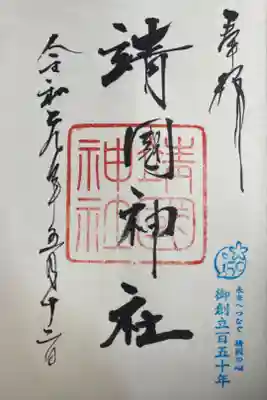 奉拝
靖國神社
靖國神社
令和元年五月十二日
150
永きへつなぐ 靖國の心
御創立百五十年